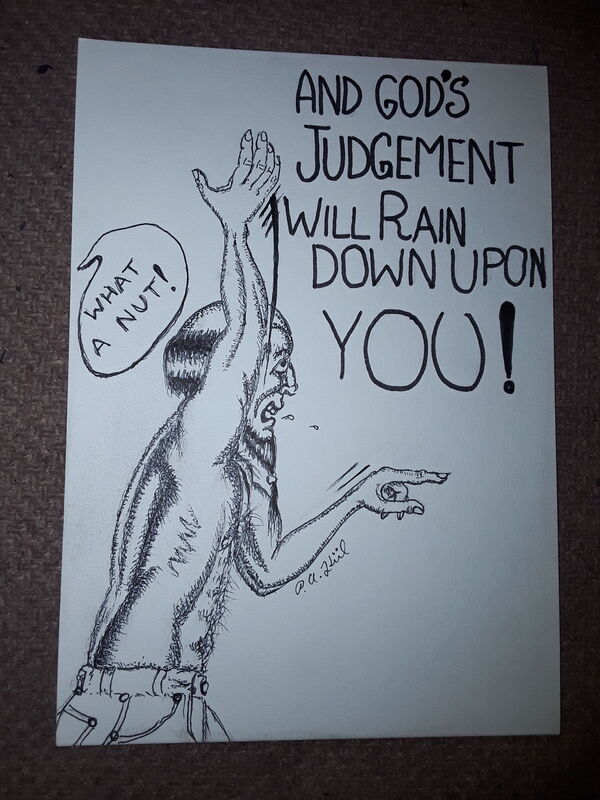 AND GOD'S
JUDGEMENT
WILL RAIN
DOWN UPON
YOU!
WHAT
A NUT!
P.A. Hüil